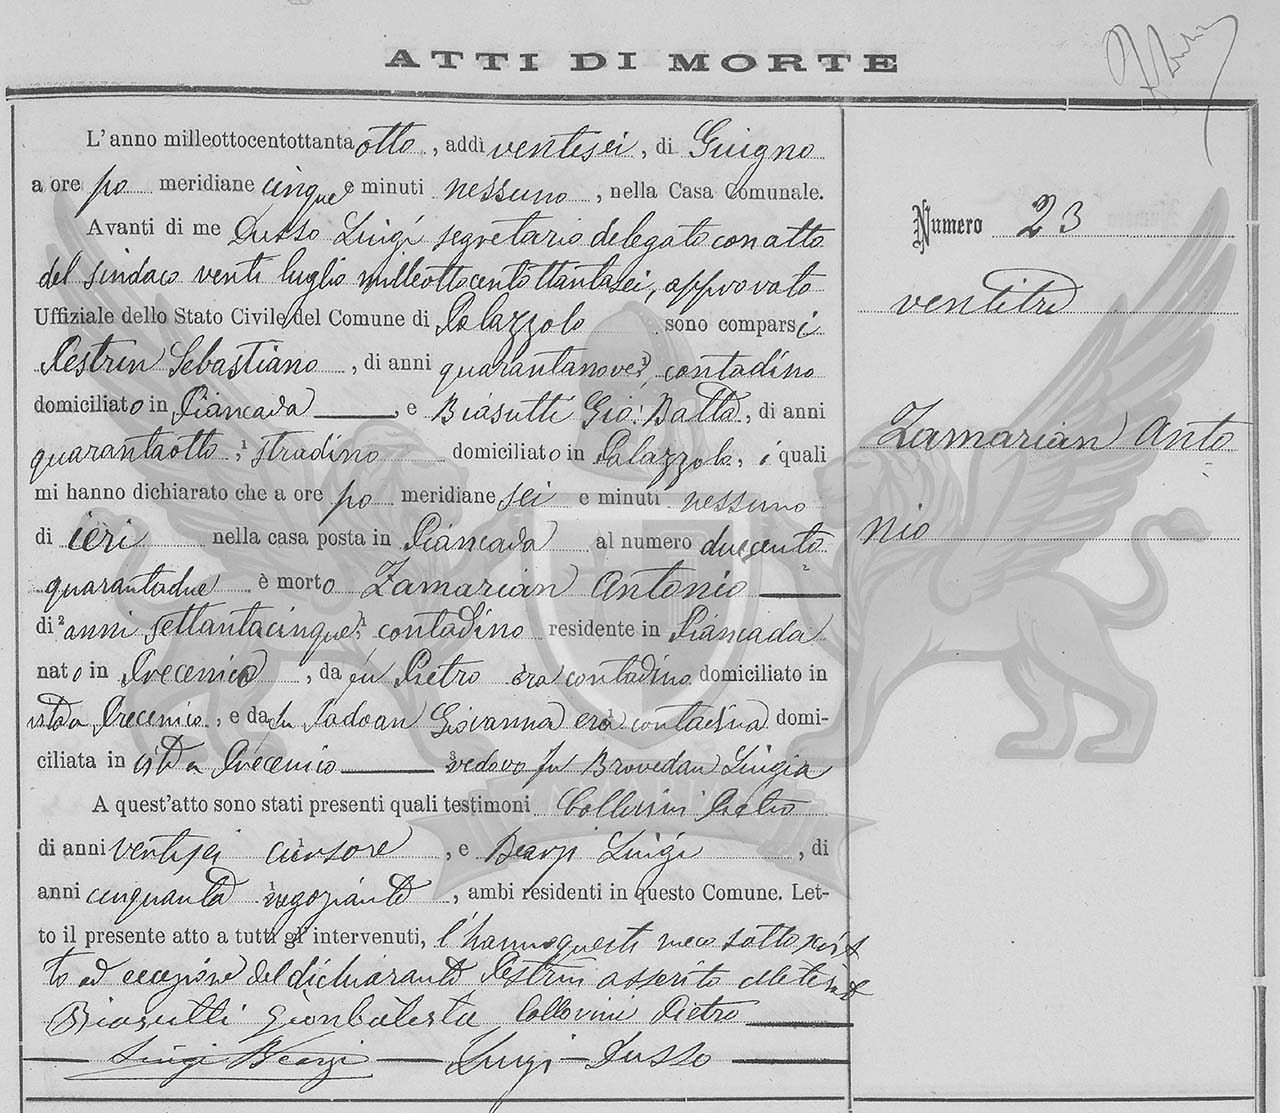 ATTI DI MORTE
L'anno milleottocentottanta otto, addì ventisei, di Guigno
a ore po meridiane cinque e minuti nessuno, nella Casa Comunale.
Avanti di me Dusso Luigi segretario delegato con atto
del sindaco venti luglio milleottocentottantasei, approvato
Uffiziale dello Stato Civile del Comune di Palazzolo sono comparsi
Pestrin Sebastiano, di anni quarantanove, contadino
domiciliato in Piancada, e Biasutti Gio: Batta, di anni
quarantaotto, stradino domiciliato in Palazzolo, i quali
mi hanno dichiarato che a ore po meridiane sei e minuti nessuno
di ieri nella casa posta in Piancada al numero duecento
quarantadue è morto Zamarian Antonio
di anni settantacinque, contadino residente in Piancada
nato in Precenico, da fu Pietro era contadino domiciliato in
vita a Precenico, e da fu Padoan Giovanna era contadina domi-
ciliata in vita a Precenico vedovo fu Brovedan Luigia
A quest'atto sono stati presenti quali testimoni Collovini Pietro
di anni ventisei cursore, e Bearzi Luigi, di
anni cinquanta negoziante, ambi residenti in questo Comune. Let-
to il presente atto a tutti gl' intervenuti, l'hanno questi meco sottoscrit
to ad eccezione del dichiarante Pestrin asserito
Biasutti Gionbatista Collovini Pietro
Luigi Bearzi Luigi Dusso
Numero 23
ventitre
Zamarian Anto
nio